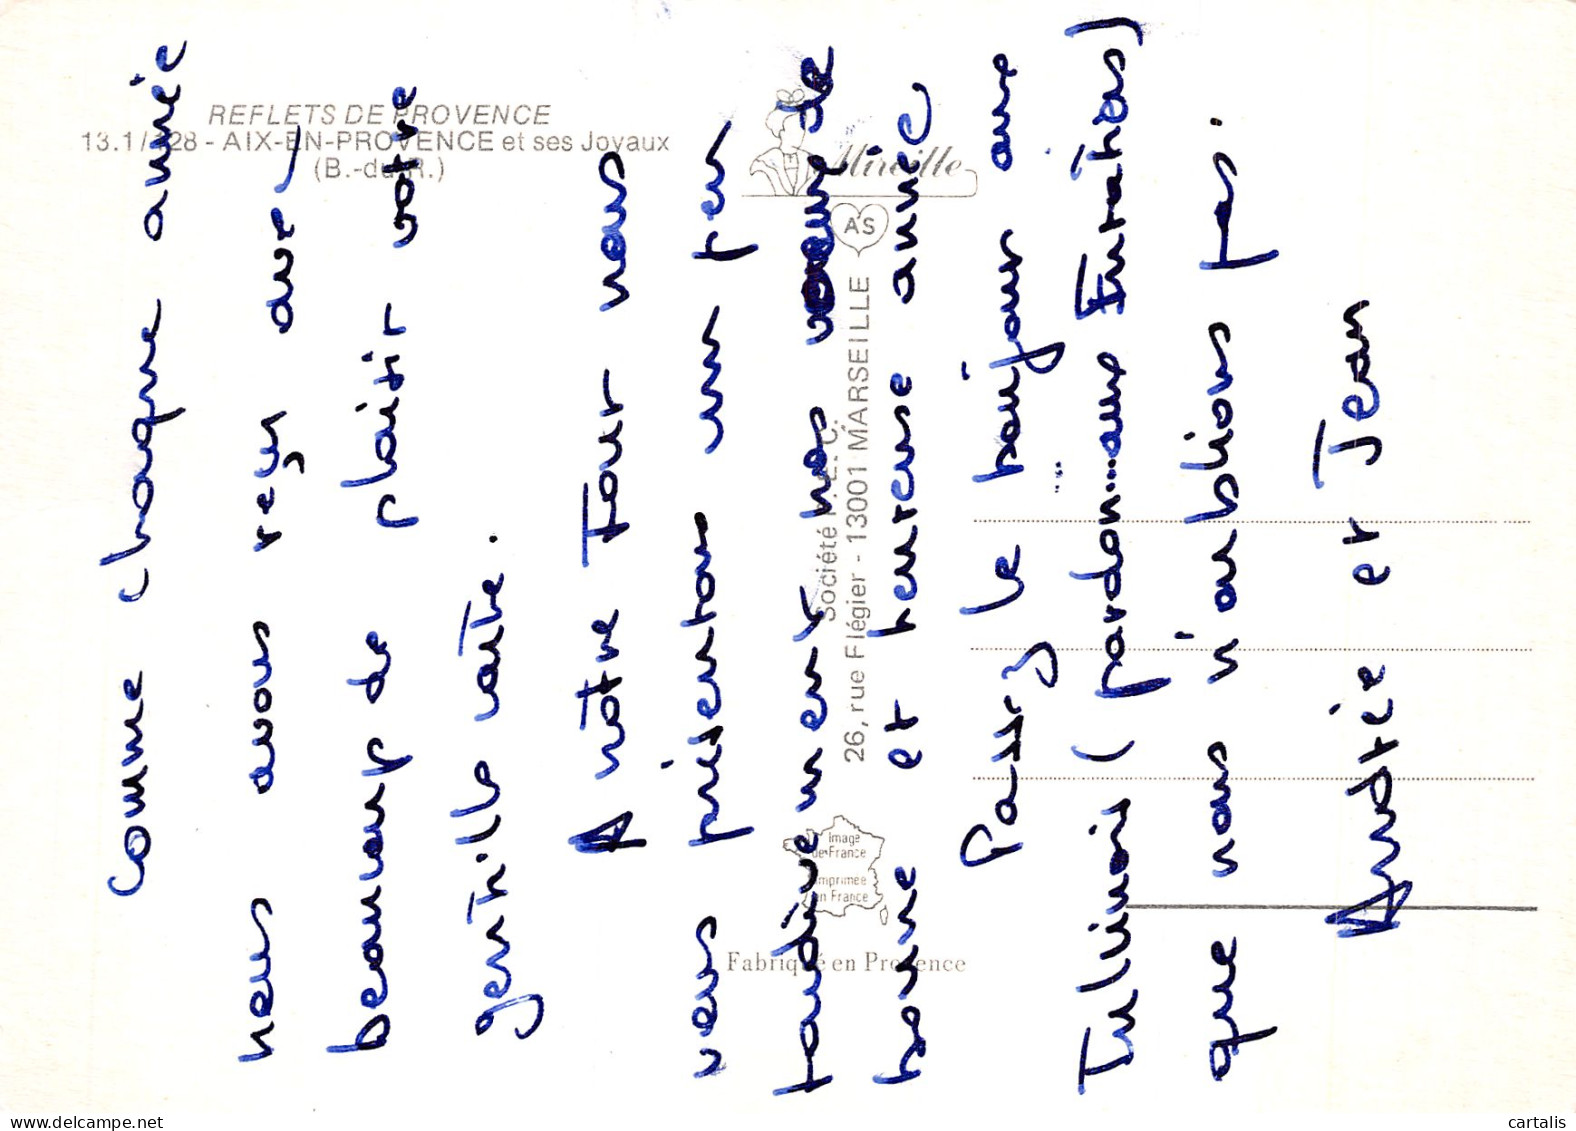 REFLETS DE PROVENCE
13.1/128 - AIX-EN-PROVENCE et ses Joyaux
(B.-du-R.)
Mireille
AS
Société P.E.C.
26, rue Flégier - 13001 MARSEILLE
Image
de France
Imprimée
en France
Fabriqué en Provence
Comme chaque année
nous avons reçu avec
beaucoup de plaisir votre
gentille carte.
A notre Tour nous
vous présentons un peu
tardivement nos voeux de
bonne et heureuse année
Passez le bonjour aux
Tullinois (pardon...aux
que nous n'oublions pas.
Andrée et Jean
cartalis
www.delcampe.net